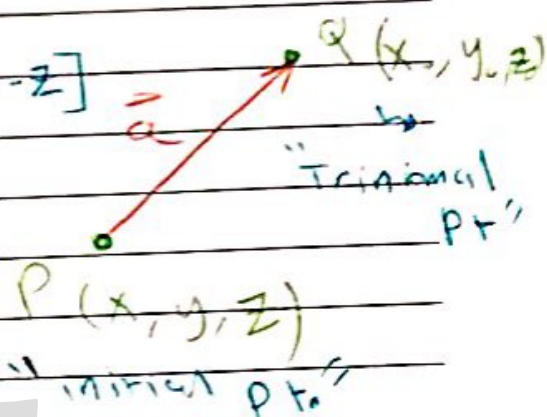 -z]
Q (x₀, y₀, z)
a
"Trinimal
Pt"
P (x, y, z)
"initial Pt."